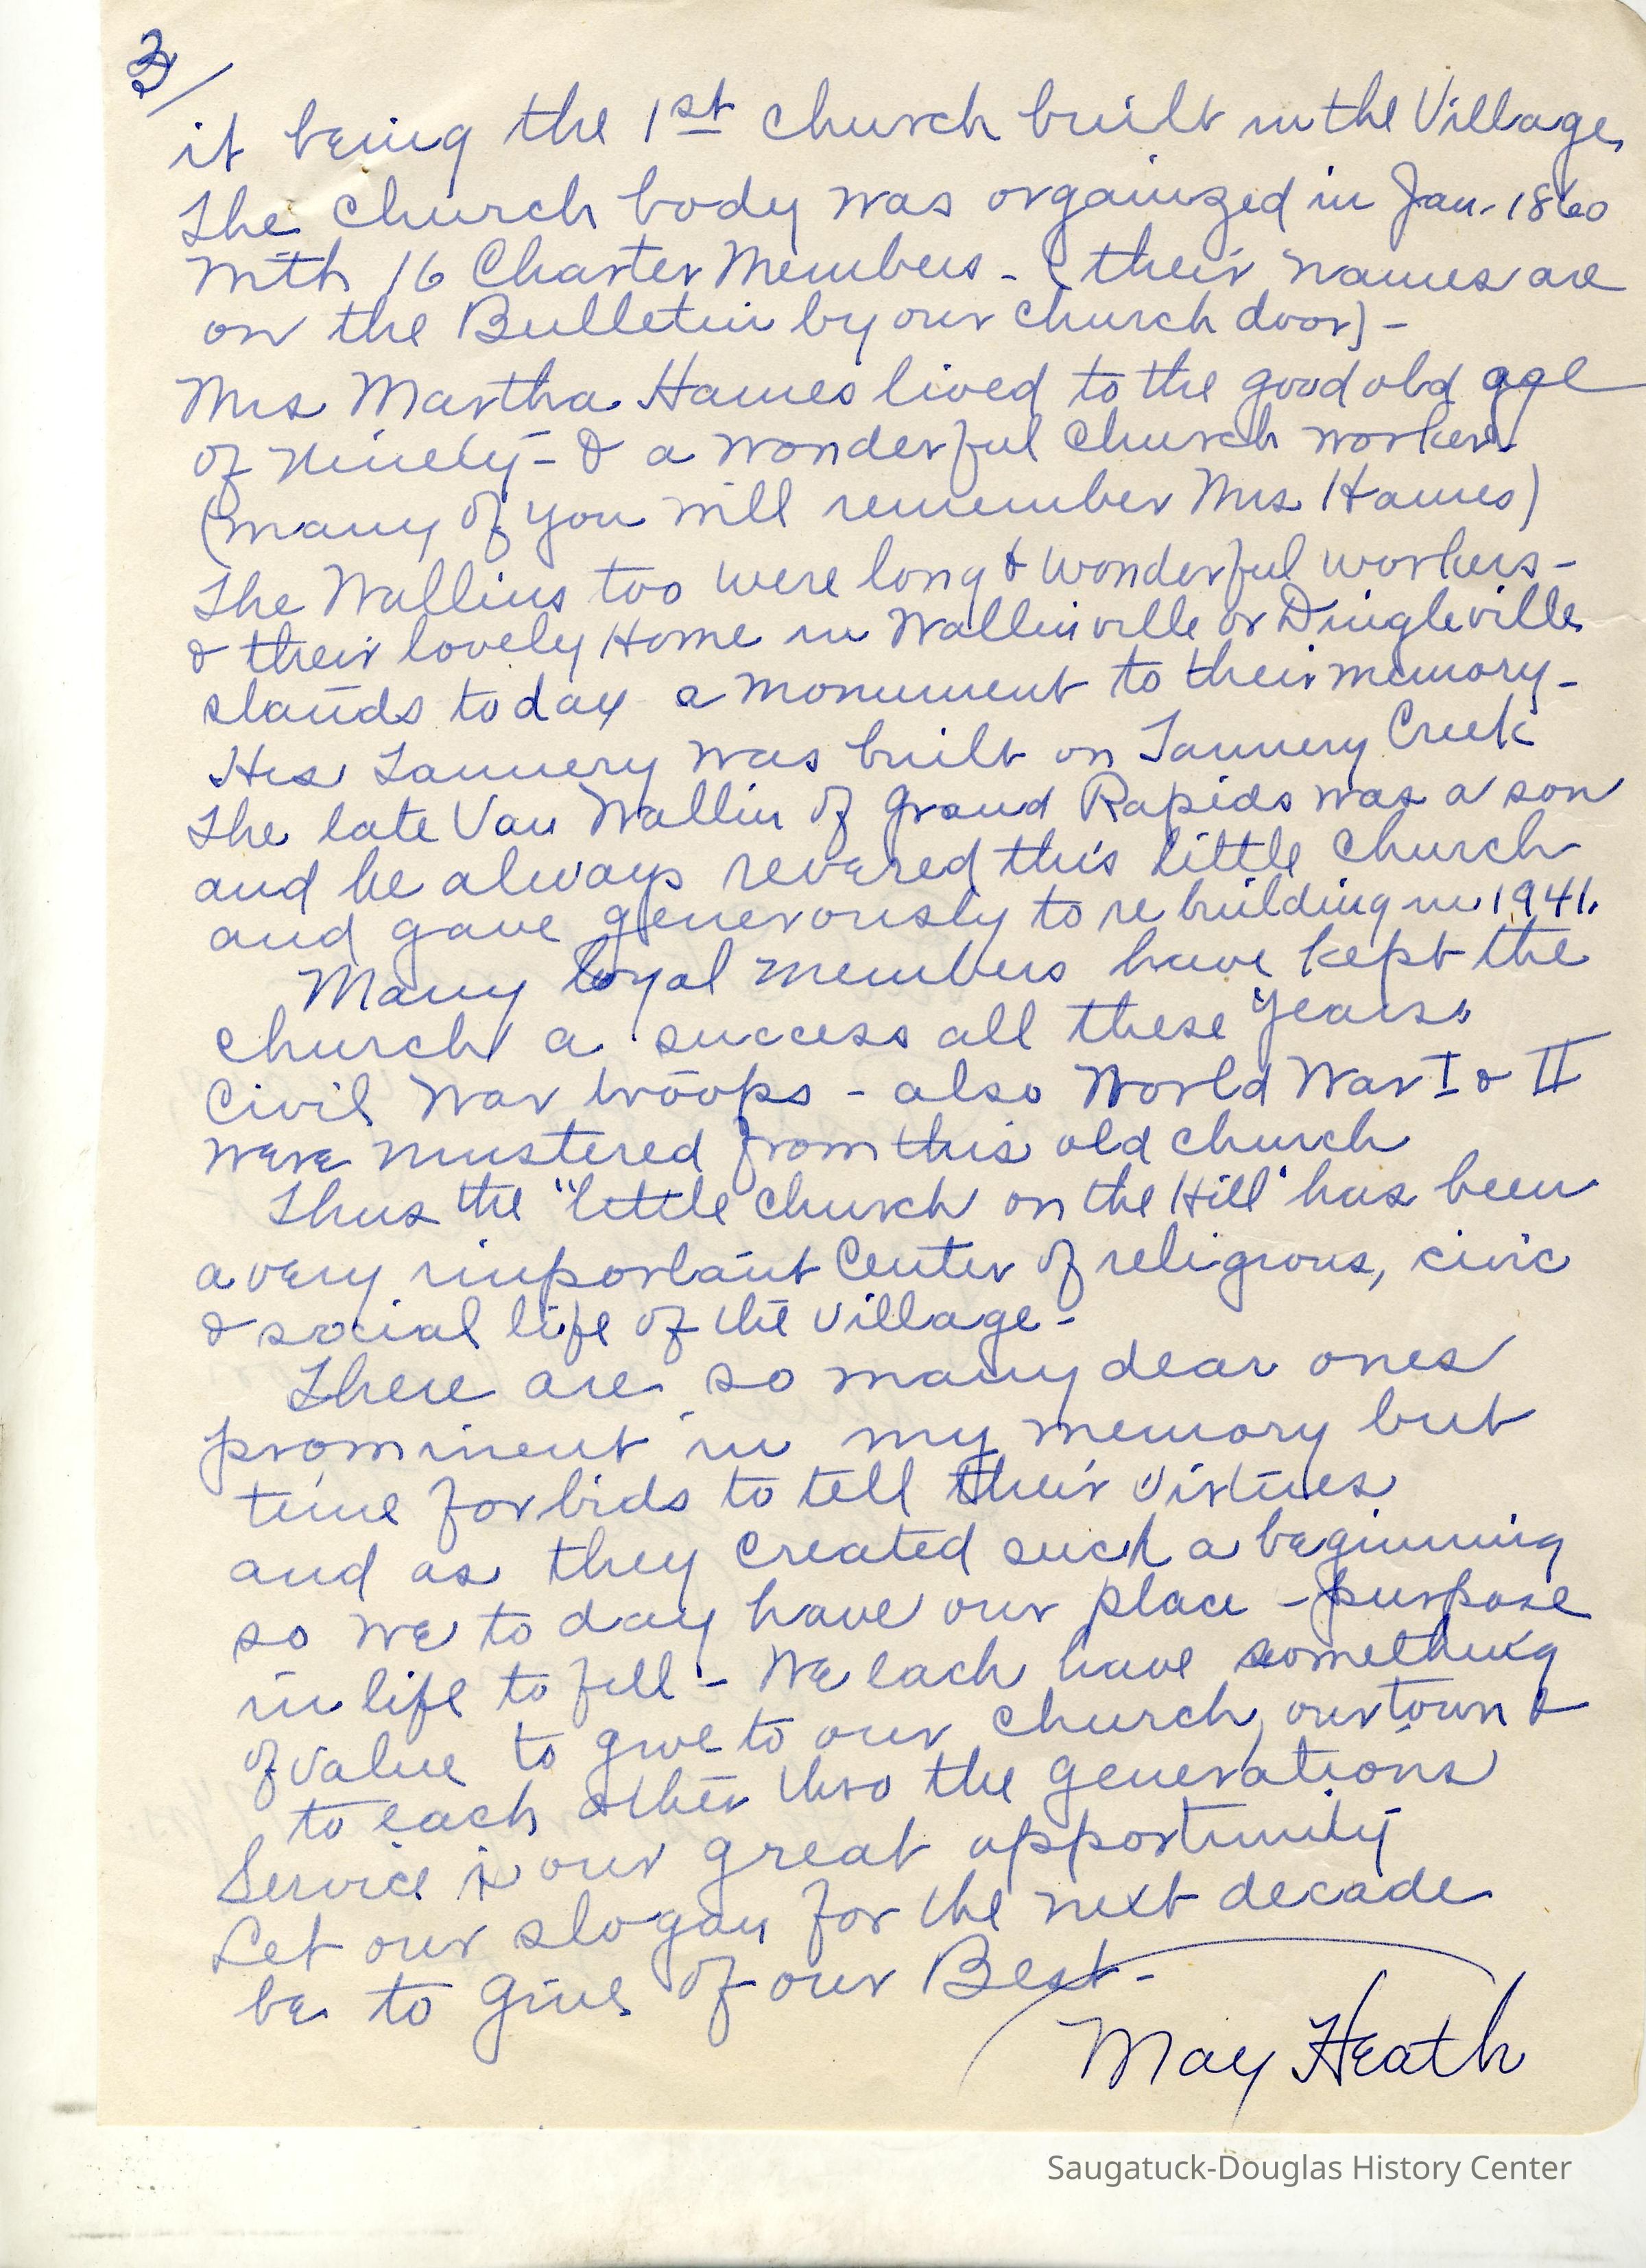 3/
it being the 1st church built in the Village,
The church body was organized in Jan. 1860
with 16 Charter Members - (their names are
on the Bulletin by our church door) -
Mrs Martha Hames lived to the good old age
of ninety - & a wonderful church worker
(many of you will remember Mrs Hames)
The Wallins too were long & wonderful workers -
& their lovely Home in Wallinville or Dingleville
stands today a monument to their memory -
His Tannery was built on Tannery Creek
The late Van Wallin of Grand Rapids was a son
and he always revered this little church
and gave generously to rebuilding in 1941.
Many loyal members have kept the
church a success all these years.
Civil War troops - also World War I & II
were mustered from this old church
Thus the "little church on the Hill" has been
a very important Center of religious, civic
& social life of the village -
There are so many dear ones
prominent in my memory but
time forbids to tell their virtues
and as they created such a beginning
so we today have our place - purpose
in life to fill - We each have something
of value to give to our church, our town &
to each other thro the generations
Service is our great opportunity
Let our slogan for the next decade
be to give of our Best -
May Heath
Saugatuck-Douglas History Center